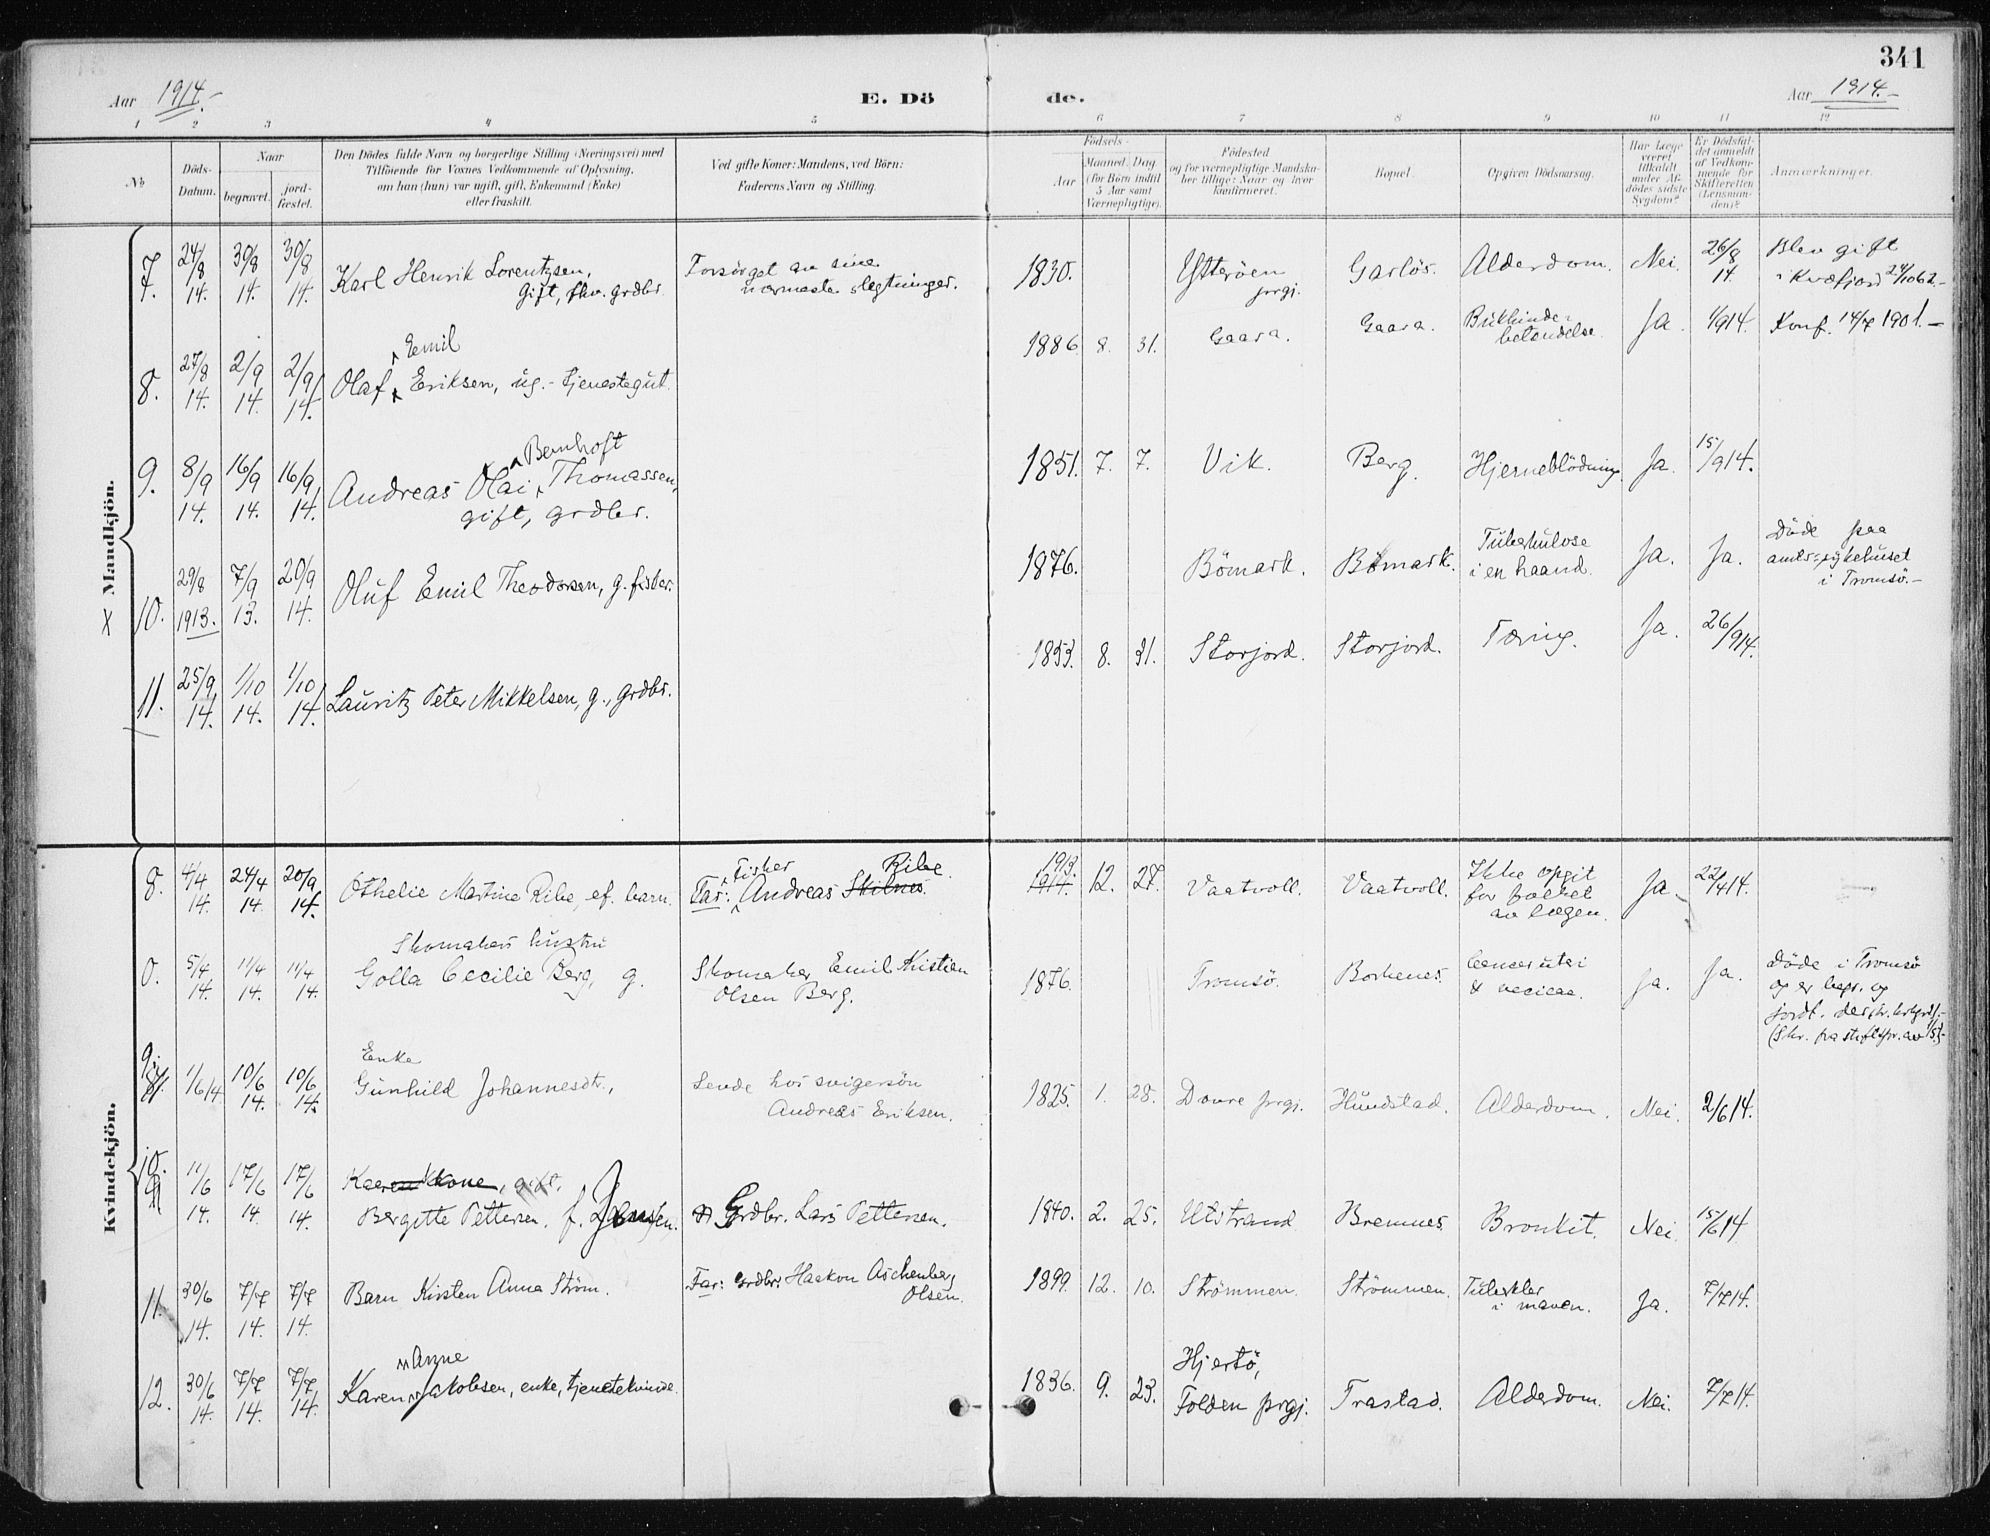 341
Aar 1914.-
E. Dö
de.
Aar 1914.-
1 2 3 4 5 6 7 8 9 10 11 12
No
Döds-Datum.
Naar
begravet.
jord-fæstet.
Den Dödes fulde Navn og borgerlige Stilling (Næringsvei) med
Tilföiende for Voxnes Vedkommende af Oplysning,
om han (hun) var ugift, gift, Enkemand (Enke)
eller fraskilt.
Ved gifte Koner: Mandens, ved Börn:
Faderens Navn og Stilling.
Födsels-
Aar
Maaned. Dag.
(for Börn indtil
5 Aar samt
Værnepligtige).
Födested
og for værnepligtige Mandska-
ber tillige: Naar og hvor
konfirmeret.
Bopæl.
Opgiven Dödsaarsag.
Har Læge
været
tilkaldt
under Af-
dödes sidste
Sygdom?
Er Dödsfal-
det anmeldt
af Vedkom-
mende for
Skifteretten
(Lensman-
den)?
Anmærkninger.
Mandkjön.
X
7. 24/8 14. 30/8 14. 30/8 14. Karl Henrik Lorentzsen, Forsörget av sine 1830. Ytteröen Garlös. Alderdom. Nei. 26/8 14. Blev gift
Gift, fhv. grdbr. nærmeste slegtninger. prgj. i Kvæfjord 24/10 62.-
8. 27/8 14. 2/9 14. 2/9 14. Olaf Emil Eriksen, ug. - tjenestegut. 1886. 8. 31. Gaara. Gaara. Bukhinde- Ja. 1/9 14. Konf. 14/7 1901.-
betændelse.
9. 8/9 14. 16/9 14. 16/9 14. Andreas Olai Bernhoft Thomassen, 1851. 7. 7. Vik. Berg. Hjerneblödning. Ja. 15/9 14.
gift, grdbr.
10. 29/8 1913. 7/9 13. 20/9 14. Oluf Emil Theodorsen, g. fisker. 1876. Bömark. Bömark. Tuberkulose Ja. Ja. Döde paa
i en haand. amts-sykehuset
i Tromsö.-
11. 25/9 14. 1/10 14. 1/10 14. Lauritz Peter Mikkelsen, g., grdbr. 1853. 8. 31. Storjord. Storjord. Tæring. Ja. 26/9 14.
Kvindekjön.
8. 4/4 14. 24/4 14. 20/9 14. Othelie Martine Ribe, ef. barn. Far: fisker Andreas Skilnes Ribe. 1914. 1913. 12. 27. Vaatvoll. Vaatvoll. Ikke opgit Ja. 22/4 14.
for folket
av lægen.
Skomakers hustru
0. 5/4 14. 11/4 14. 11/4 14. Golla Cecilie Berg, g. Skomaker Emil Kristian 1876. Tromsö. Borkenes. Cancer uteri Ja. Ja. Döde i Tromsö
Olsen Berg. & vecicae. og er begr. og
jordf. der
Enke
9. 1/6 14 10/6 14. 10/6 14. Gunhild Johannesdtr., Levde hos svigersön 1825. 1. 28. Dovre prgj. Hundstad. Alderdom. Nei. 2/6 14.
Andreas Eriksen.
10. 11/6 14. 17/6 14. 17/6 14. Kaeren Kkone, gift,
Bergette Pettersen. f. Jensen. Grdbr. Lars Pettersen. 1840. 2. 25. Utstrand Bremnes. Bronkit. Nei. 15/6 14
11. 30/6 14. 7/7 14. 7/7 14. Barn Kirsten Anna Ström. Far: Grdbr: Haakon Aschenberg 1899. 12. 10. Strömmen. Strömmen. Tuberkler Ja. 7/7 14.
Olsen. i maven.
12. 30/6 14. 7/7 14. 7/7 14. Karen Anne Jakobsen, enke, tjenestekvinde. 1836. 9. 23. Hjertö, Trastad. Alderdom. Nei. 7/7 14.
Folden prgj.